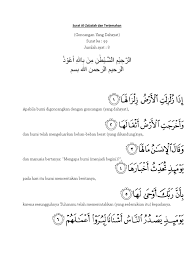 Surat Al Zalzalah dan Terjemahan
(Goncangan Yang Dahsyat)
Surat ke : 99
Jumlah ayat : 8
الرَّجِيْمِ الشَّيْطَانِ مِنَ بِاللهِ أَعُوْذُ
الرحيم الرحمن الله بسم
إِذَا زُلْزِلَتِ الْأَرْضُ زِلْزَالَهَا ١
Apabila bumi digoncangkan dengan goncangan (yang dahsyat),
وَأَخْرَجَتِ الْأَرْضُ أَثْقَالَهَا ٢
dan bumi telah mengeluarkan beban-beban berat (yang dikandung)nya,
وَقَالَ الْإِنسَانُ مَا لَهَا ٣
dan manusia bertanya: "Mengapa bumi (menjadi begini)?",
يَوْمَئِذٍ تُحَدِّثُ أَخْبَارَهَا ٤
pada hari itu bumi menceritakan beritanya,
بِأَنَّ رَبَّكَ أَوْحَىٰ لَهَا ٥
karena sesungguhnya Tuhanmu telah memerintahkan (yang sedemikian itu) kepadanya.
يَوْمَئِذٍ يَصْدُرُ النَّاسُ أَشْتَاتًا لِّيُرَوْا أَعْمَالَهُمْ ٦